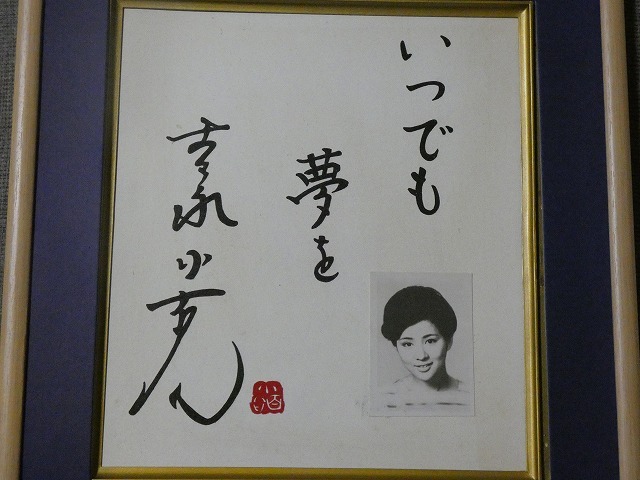 いつでも
夢を
吉永小百合